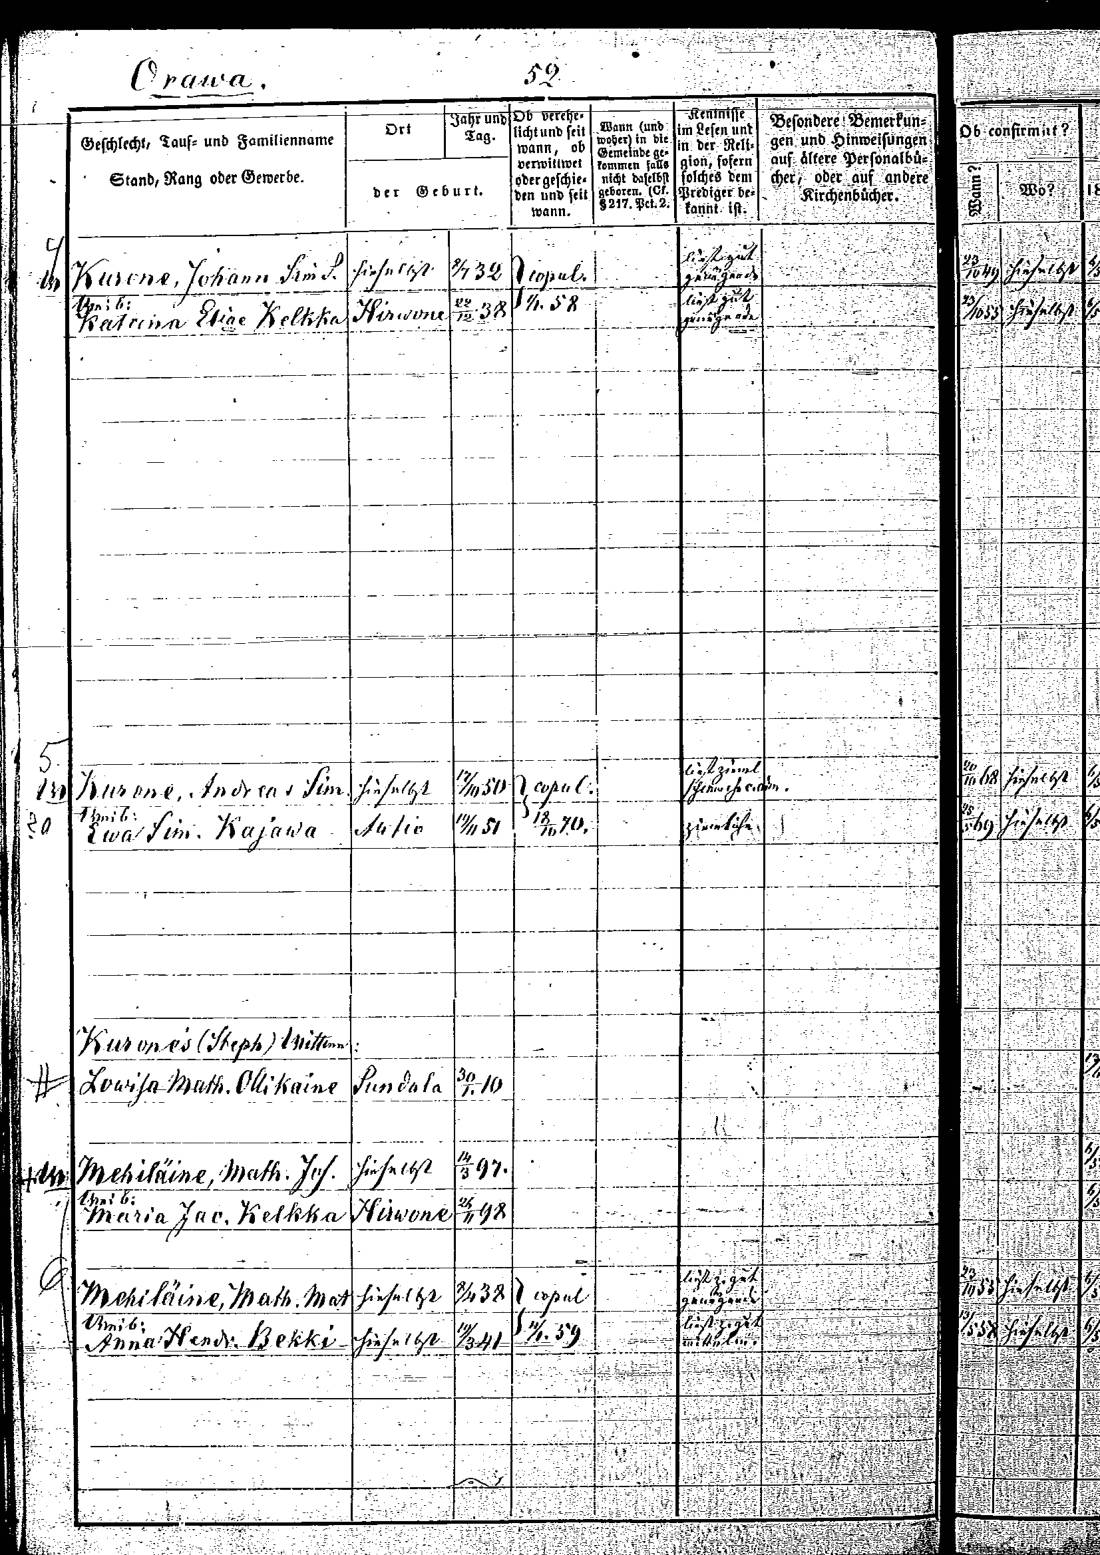 Orawa. 52
Geschlecht, Tauf- und Familienname
Stand, Rang oder Gewerbe.
Ort
Jahr und Tag.
der Geburt.
Ob verehe-
licht und seit
wann, ob
verwittwet
oder geschie-
den und seit
wann.
Wann (und
woher) in die
Gemeinde ge-
kommen falls
nicht daselbst
geboren. (Cf.
§ 217. Pct. 2.
Kentnisse
im Lesen und
in der Reli-
gion, sofern
solches dem
Prediger be-
kannt ist.
Besondere Bemerkun-
gen und Hinweisungen
auf ältere Personalbü-
cher, oder auf andere
Kirchenbücher.
Ob confirmirt?
Wann?
Wo?
18
4
Kurone, Johann Sim S. hieselbst 32 copul. liest gut genügend 23/10 49 hieselbst
Weib:
Katrina Eliae Kelkka Hirwone 22/12 38 58 liest gut genügende 53 hieselbst
5
Kurone, Andreas Sim. hieselbst 17/10 50 copul. liest zieml 20/10 68 hieselbst
Weib:
Ewa Sim. Kajawa Autio 51 18/10 70. ziemliche 69 hieselbst
Kurone's (Steph) Wittwe:
Lowisa Math. Ollikaine Sundala 30/1. 10
Mehiläine, Math. Joh. hieselbst 14/3 97.
Weib:
Maria Jac. Kelkka Hirwone 26/11 98
6
Mehiläine, Math. Mat hieselbst 38 copul liest z. gut genügend 23/10 53 hieselbst
Weib:
Anna Hendr. Bekki hieselbst 19/3 41 59 liest z. gut 58 hieselbst